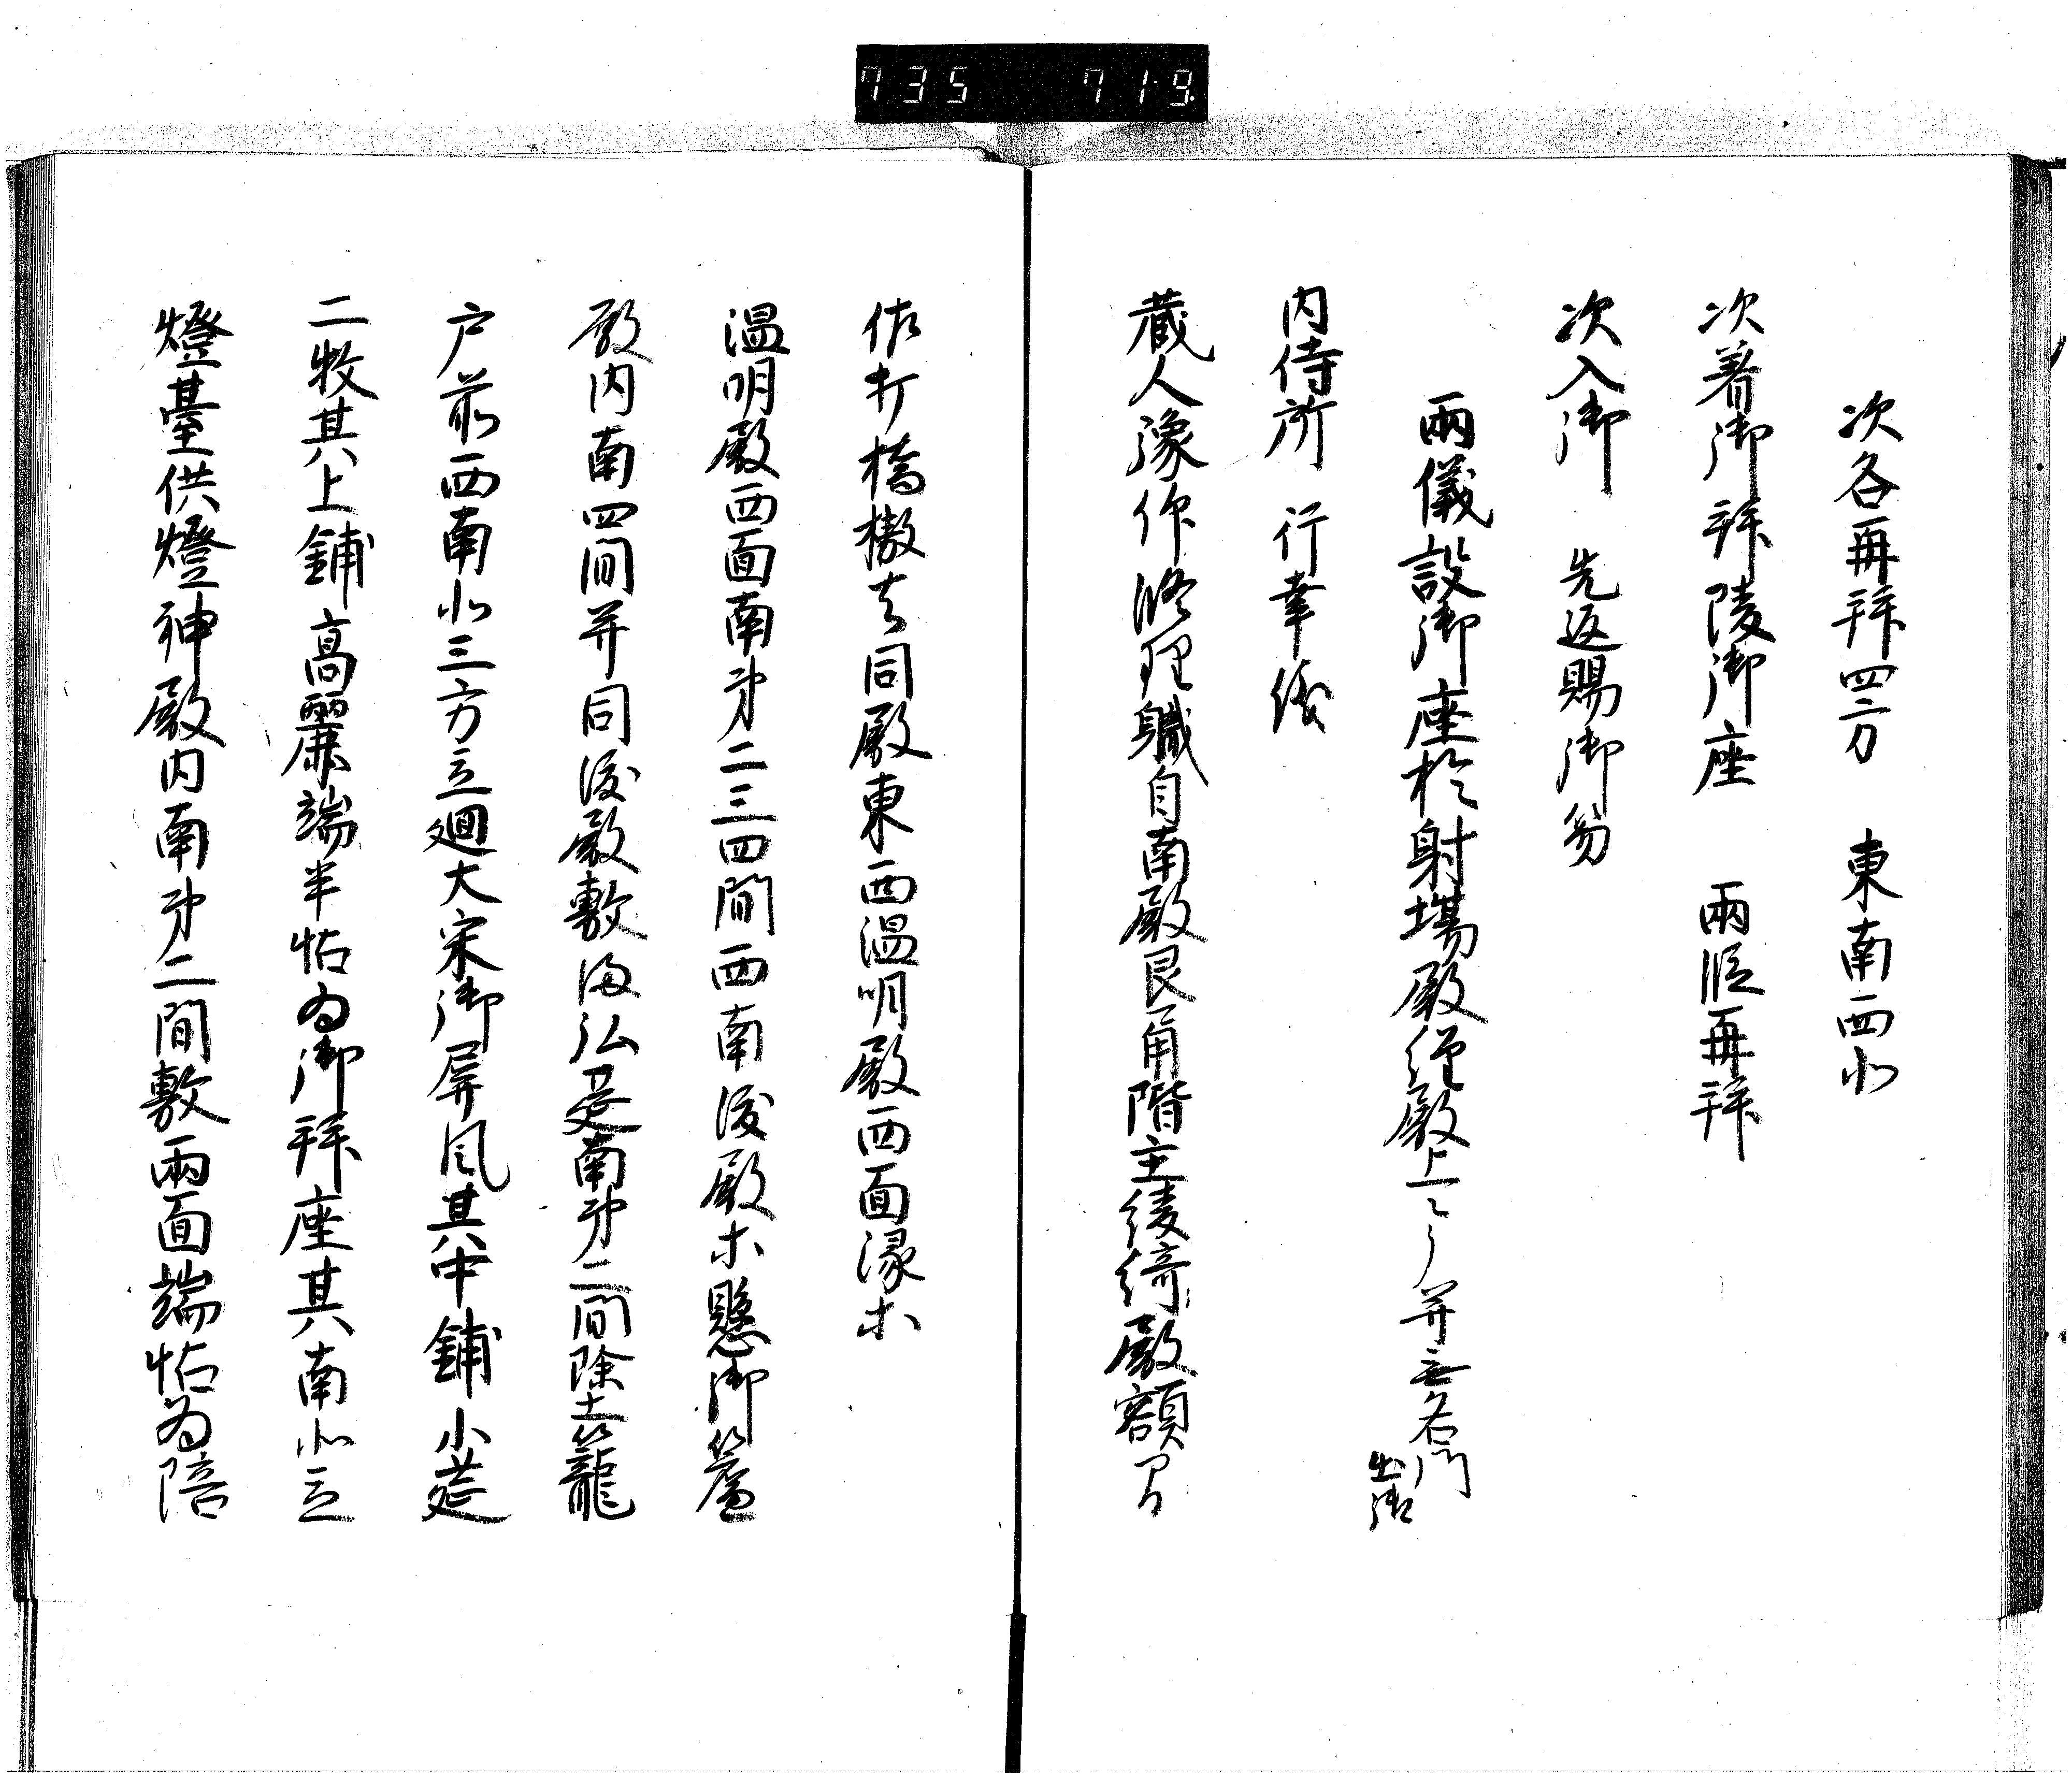 735 719
次各再拝四方 東南西北
次着御拝陵御座 両段再拝
次入御 先返賜御笏
雨儀設御座於射場殿経殿上〻戸并無名門
出御
内侍所 行幸儀
蔵人豫仰修理職自南殿艮角階主綾綺殿額間
作打橋橄去同殿東西温明殿西面縁木
温明殿西面南第二三四間西南後殿木懸御簾
殿内南四間并同後殿敷満弘莚南第二間除土籠
戸前西南北三方立廻大宋御屏風其中鋪小莚
二牧其上鋪高麗端半帖為御拝座其南北立
燈臺供燈神殿内南第二間敷両面端帖為陪